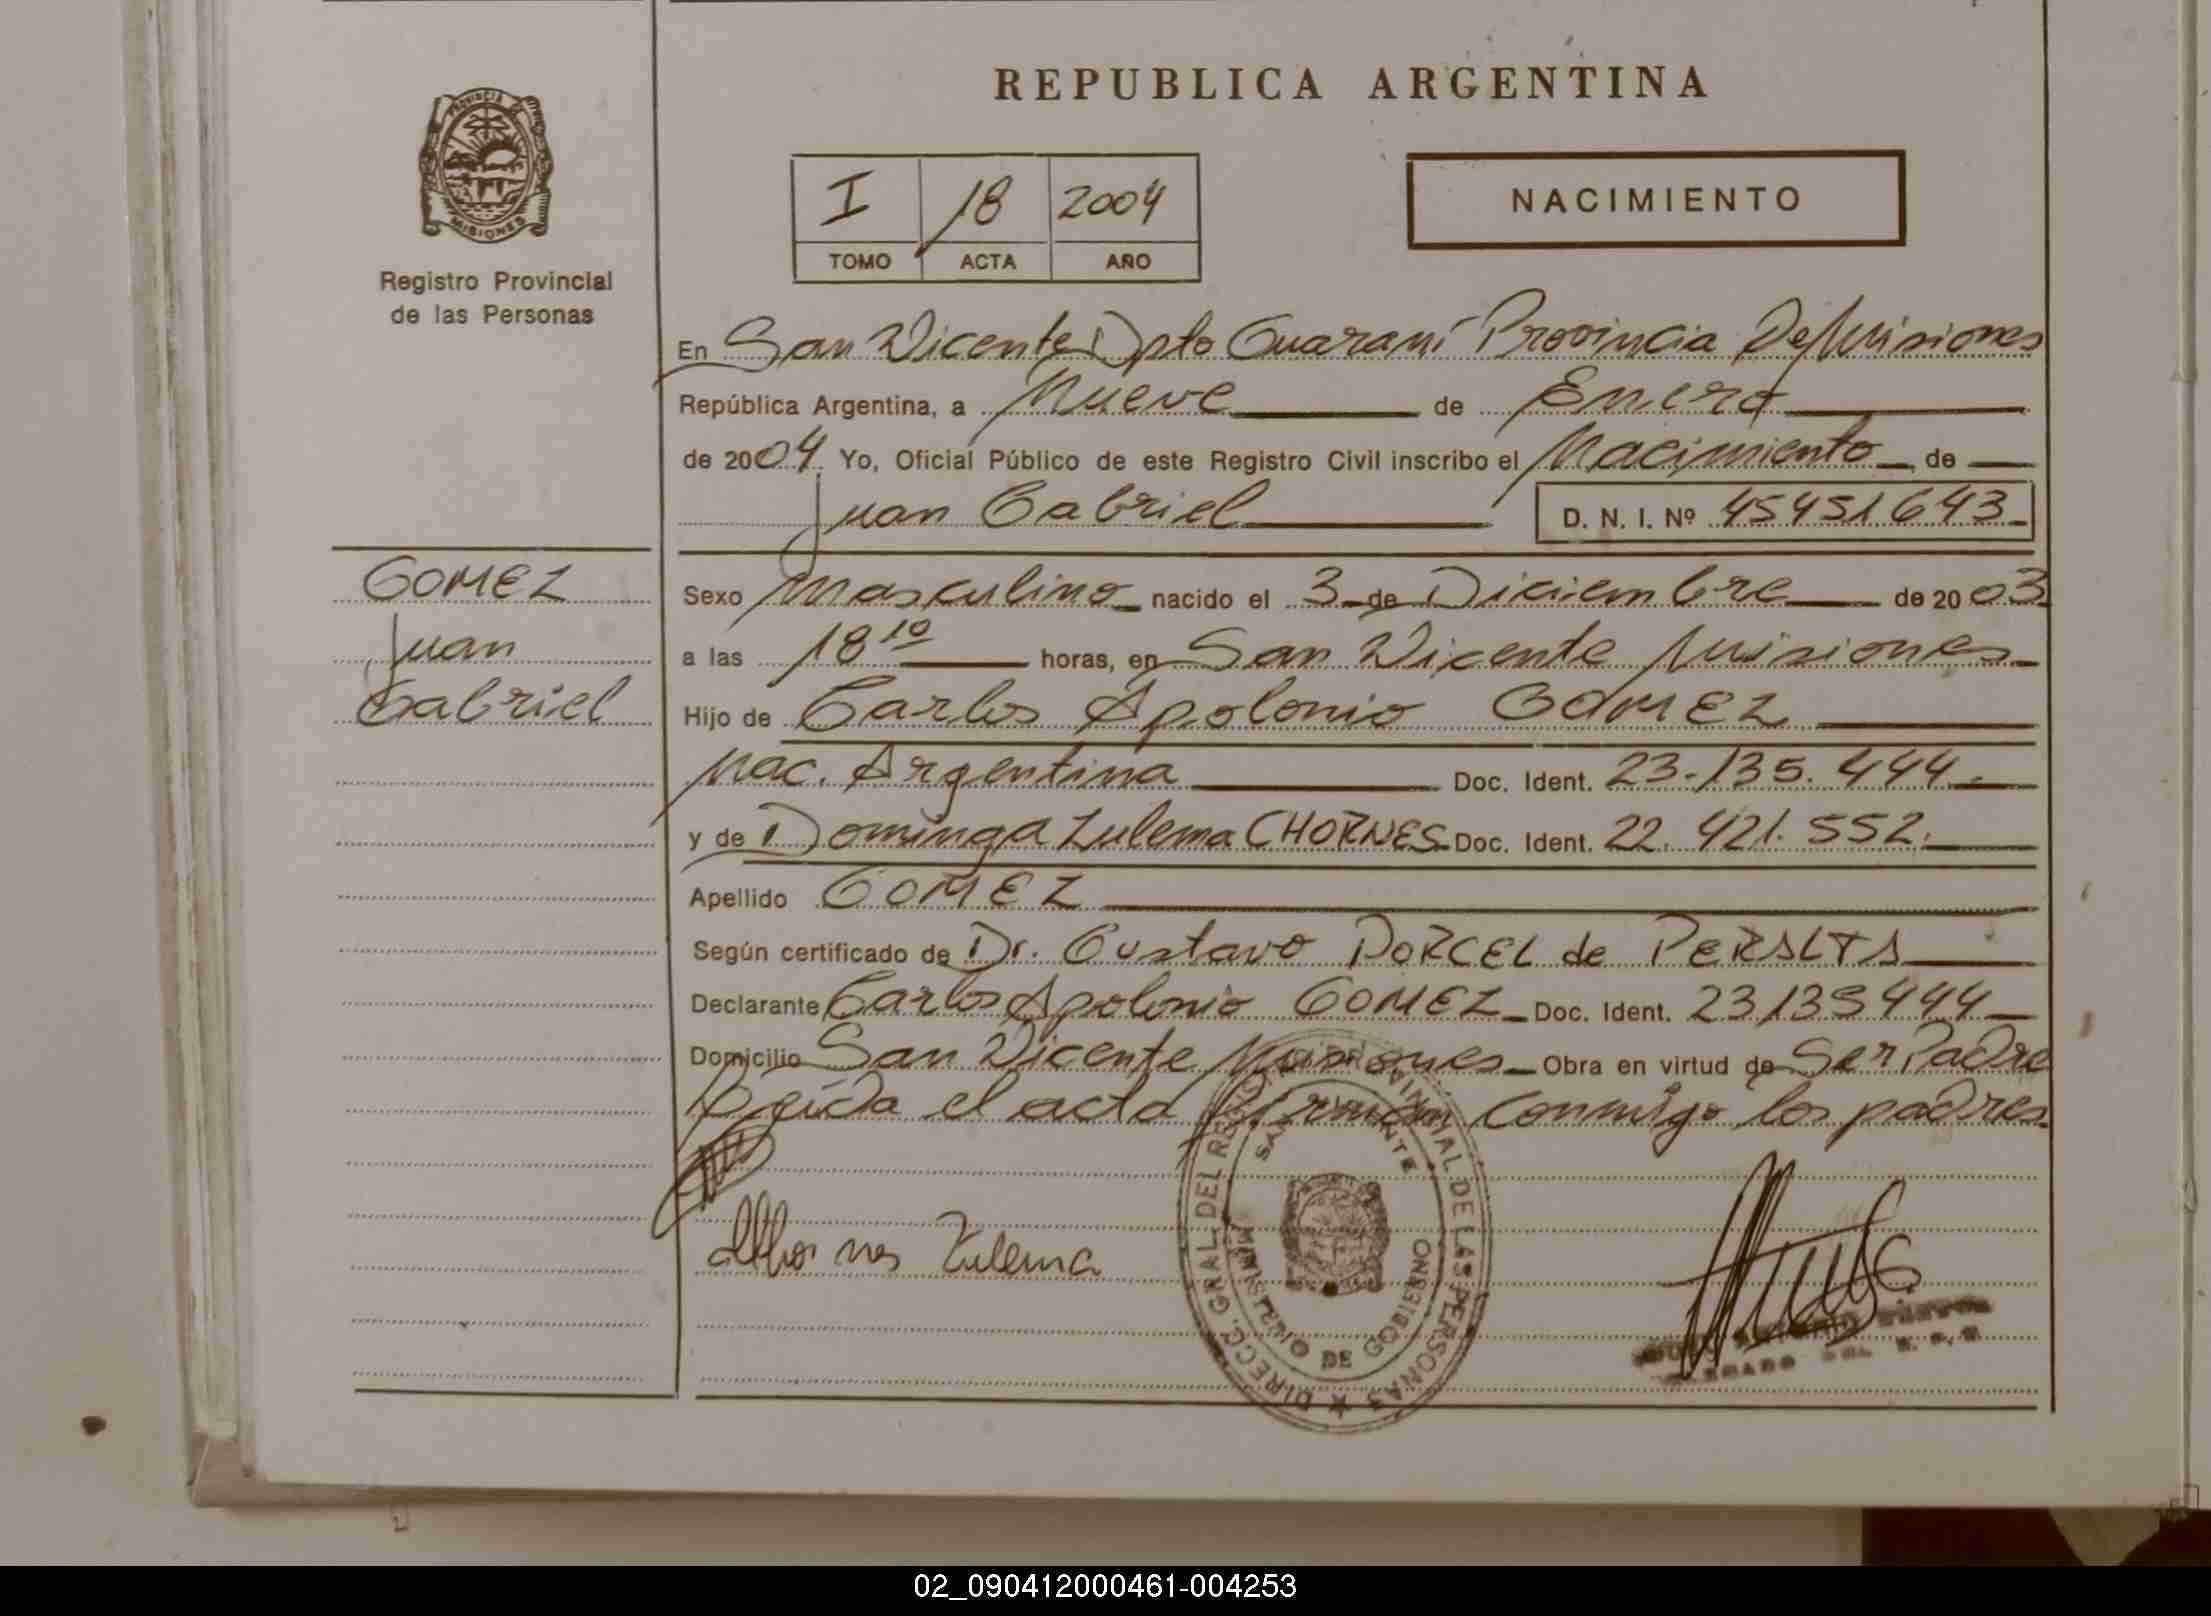 REPUBLICA ARGENTINA
PROVINCIA
MISIONES
Registro Provincial
de las Personas
I 18 2004
TOMO ACTA AÑO
NACIMIENTO
En San Vicente Dpto Guaraní Provincia De Misiones
República Argentina, a Nueve de Enero
de 2004 Yo, Oficial Público de este Registro Civil inscribo el Nacimiento de
Juan Gabriel D. N. I. Nº 45451643
GOMEZ
Juan
Gabriel
Sexo Masculino nacido el 3 de Diciembre de 2003
a las 18 10 horas, en San Vicente Misiones
Hijo de Carlos Apolonio GOMEZ
Nac. Argentina Doc. Ident. 23.135.444.
y de Dominga Zulema CHORNES Doc. Ident. 22.421.552.
Apellido GOMEZ
Según certificado de Dr. Gustavo DORCEL de PERALTA
Declarante Carlos Apolonio GOMEZ Doc. Ident. 23135444
Domicilio San Vicente Misiones Obra en virtud de Ser Padre
Leída el acta firman conmigo los padres
Zulema
DIRECC. GRAL. DEL REGISTRO PROVINCIAL DE LAS PERSONAS
SAN VICENTE
MINISTERIO DE GOBIERNO
02_090412000461-004253